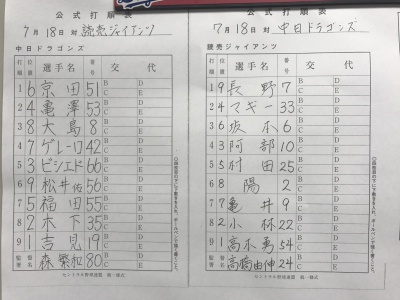 公式打順表
7月18日 対 読売ジャイアンツ
中日ドラゴンズ
打順 位置 選手名 番号 交代
1 6 京田 51 B D C E
2 4 亀澤 53 B D C E
3 8 大島 8 B D C E
4 7 ゲレーロ 42 B D C E
5 3 ビシエド 66 B D C E
6 9 松井佑 56 B D C E
7 5 福田 55 B D C E
8 2 木下 35 B D C E
9 1 吉見 19 B D C E
監督 署名 森繁和 80
セントラル野球連盟 統一様式
公式打順表
7月18日 対 中日ドラゴンズ
読売ジャイアンツ
打順 位置 選手名 番号 交代
1 9 長野 7 B D C E
2 4 マギー 33 B D C E
3 6 坂本 6 B D C E
4 3 阿部 10 B D C E
5 5 村田 25 B D C E
6 8 陽 2 B D C E
7 7 亀井 9 B D C E
8 2 小林 22 B D C E
9 1 高木勇 54 B D C E
監督 署名 高橋由伸 24
セントラル野球連盟 統一様式